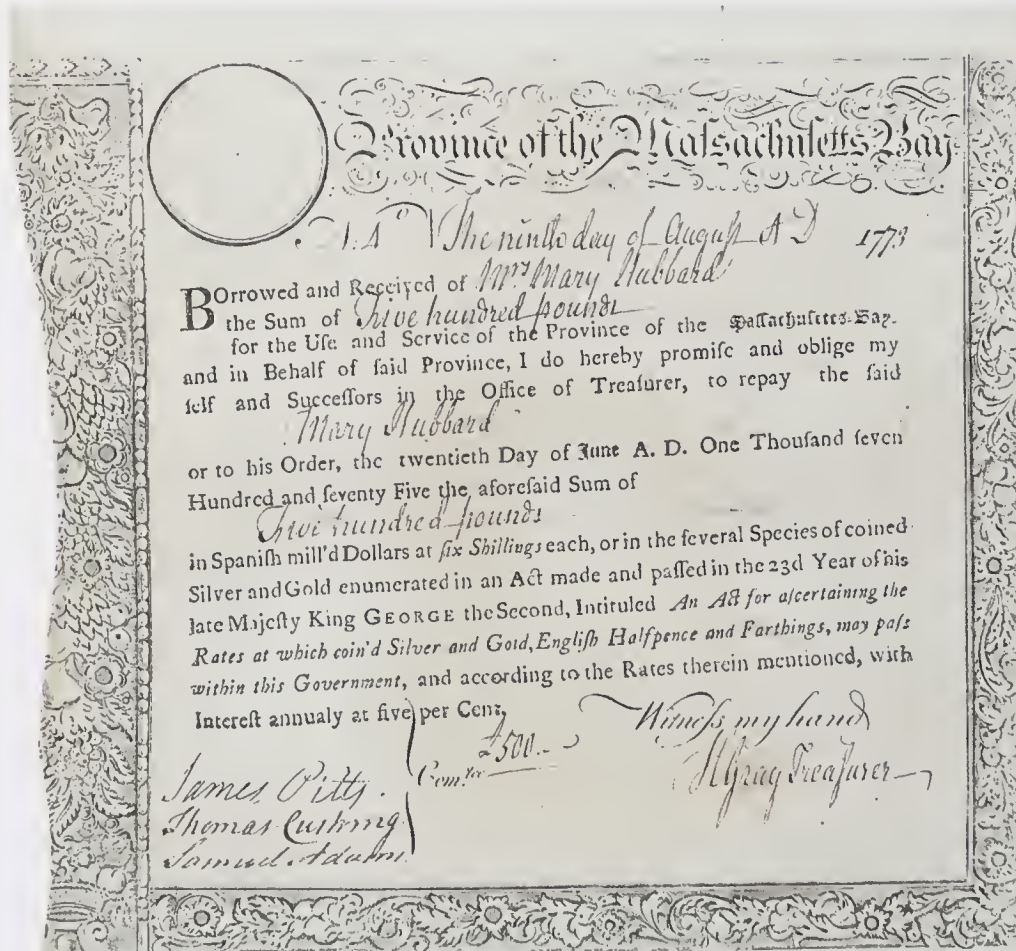 Province of the Maſsachuſetts Bay
The ninth day of Auguſt A D 1773
BOrrowed and Received of Mrs Mary Hubbard
the Sum of Five hundred pounds
for the Uſe and Service of the Province of the Maſſachuſetts-Bay.
and in Behalf of ſaid Province, I do hereby promiſe and oblige my
ſelf and Succeſſors in the Office of Treaſurer, to repay the ſaid
Mary Hubbard
or to his Order, the twentieth Day of June A. D. One Thouſand ſeven
Hundred and ſeventy Five the aforeſaid Sum of
Five hundred pounds
in Spaniſh mill'd Dollars at ſix Shillings each, or in the ſeveral Species of coined
Silver and Gold enumerated in an Act made and paſſed in the 23d Year of his
late Majeſty King GEORGE the Second, Intituled An Act for aſcertaining the
Rates at which coin'd Silver and Gold, Engliſh Halfpence and Farthings, may paſs
within this Government, and according to the Rates therein mentioned, with
Intereſt annualy at five per Cent,
Witneſs my hand
£500.
James Pitts.
Comtee
HGray Treaſurer
Thomas Cushing
Samuel Adams